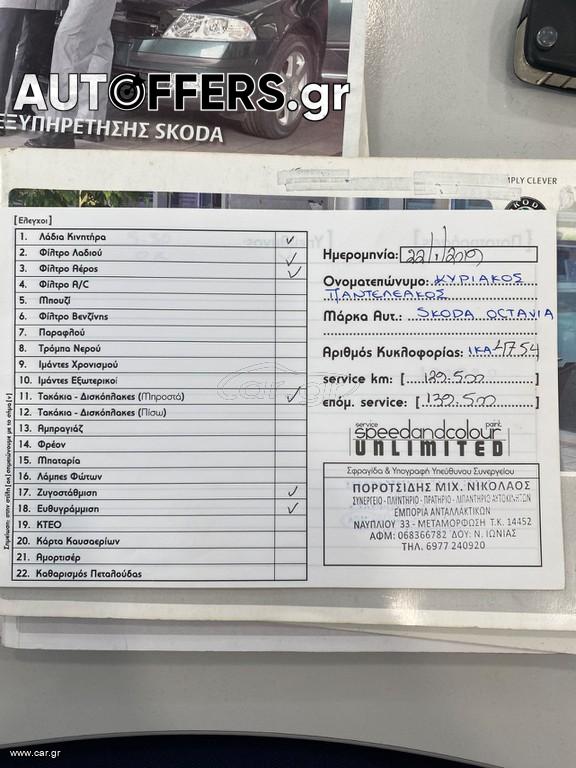 AUTOFFERS.gr
ΕΞΥΠΗΡΕΤΗΣΗΣ SKODA
SIMPLY CLEVER
[Ελεγχοι]
1. Λάδια Κινητήρα ✓
2. Φίλτρο Λαδιού ✓
3. Φίλτρο Αέρος ✓
4. Φίλτρο A/C
5. Μπουζί
6. Φίλτρο Βενζίνης
7. Παραφλού
8. Τρόμπα Νερού
9. Ιμάντες Χρονισμού
10. Ιμάντες Εξωτερικοί
11. Τακάκια - Δισκόπλακες (Μπροστά) ✓
12. Τακάκια - Δισκόπλακες (Πίσω)
13. Αμπραγιάζ
14. Φρέον
15. Μπαταρία
16. Λάμπες Φώτων
17. Ζυγοστάθμιση ✓
18. Ευθυγράμμιση ✓
19. ΚΤΕΟ
20. Κάρτα Καυσαερίων
21. Αμορτισέρ
22. Καθαρισμός Πεταλούδας
Σημείωση: στην στήλη [οκ] σημειώνουμε με το σήμα [v]
Ημερομηνία: 22/1/2019
Ονοματεπώνυμο: ΚΥΡΙΑΚΟΣ
ΠΑΝΤΕΛΕΑΚΟΣ
Μάρκα Αυτ.: SKODA OCTAVIA
Αριθμός Κυκλοφορίας: ΙΚΑ 4754
service km: [129.500]
επόμ. service: [139.500]
service paint
speedandcolour
UNLIMITED
Σφραγίδα & Υπογραφή Υπεύθυνου Συνεργείου
ΠΟΡΟΤΣΙΔΗΣ ΜΙΧ. ΝΙΚΟΛΑΟΣ
ΣΥΝΕΡΓΕΙΟ - ΠΛΥΝΤΗΡΙΟ - ΠΡΑΤΗΡΙΟ - ΛΙΠΑΝΤΗΡΙΟ ΑΥΤΟΚΙΝΗΤΩΝ
ΕΜΠΟΡΙΑ ΑΝΤΑΛΛΑΚΤΙΚΩΝ
ΝΑΥΠΛΙΟΥ 33 - ΜΕΤΑΜΟΡΦΩΣΗ Τ.Κ. 14452
ΑΦΜ: 068366782 ΔΟΥ: Ν. ΙΩΝΙΑΣ
ΤΗΛ. 6977 240920
car.gr
www.car.gr